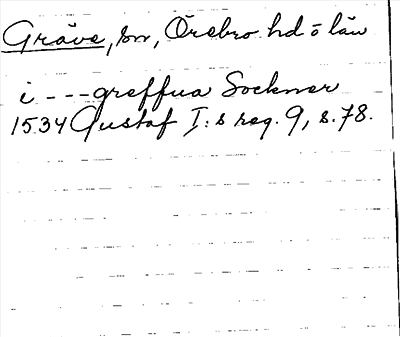 Gräve, sn, Örebro hd o län
i - - - greffua Socknner
1534 Gustaf I:s reg. 9, s. 78.